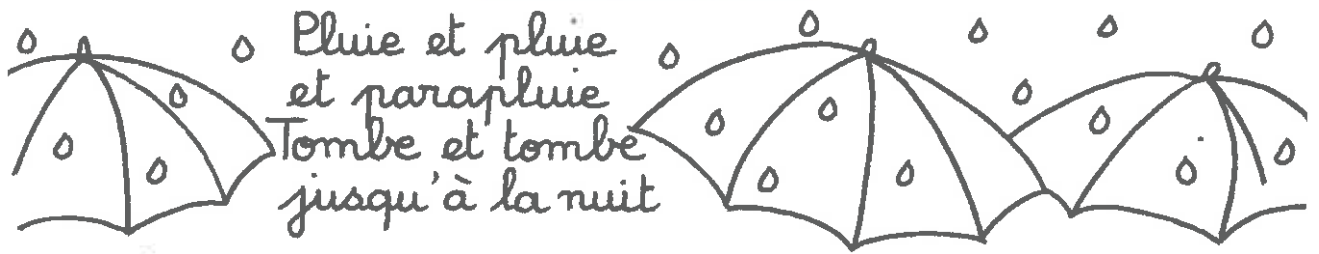 Pluie et pluie
et parapluie
Tombe et tombe
jusqu'à la nuit